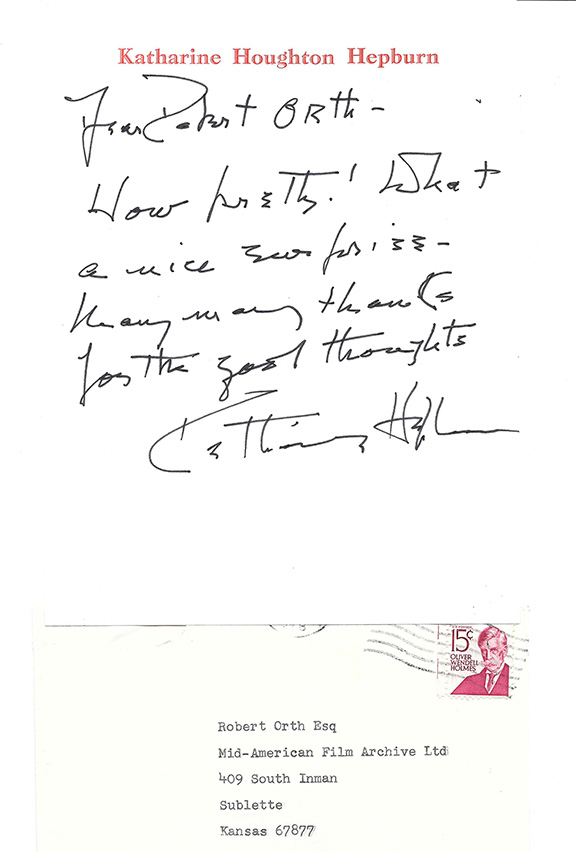 Katharine Houghton Hepburn
Dear Robert Orth -
How pretty! What
a nice surprise -
Many many thanks
for the good thoughts
Katharine Hepburn
15¢
OLIVER
WENDELL
HOLMES
Robert Orth Esq
Mid-American Film Archive Ltd
409 South Inman
Sublette
Kansas 67877